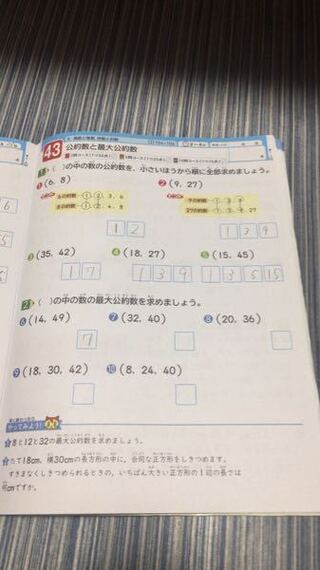 43 公約数と最大公約数
1 ( )の中の数の公約数を、小さいほうから順に全部求めましょう。
❶(6, 8) ❷(9, 27)
6の約数…①, ②, 3, 6 9の約数…①, ③, ⑨
8の約数…①, ②, 4, 8 27の約数…①, ③, ⑨, 27
1 2 1 3 9
❸(35, 42) ❹(18, 27) ❺(15, 45)
1 7 1 3 9 1 3 5 15
2 ( )の中の数の最大公約数を求めましょう。
❻(14, 49) ❼(32, 40) ❽(20, 36)
7
❾(18, 30, 42) ❿(8, 24, 40)
やってみよう!
8と12と32の最大公約数を求めましょう。
たて18cm、横30cmの長方形の中に、合同な正方形をしきつめます。
すきまなくしきつめられるときの、いちばん大きい正方形の1辺の長さは
何cmですか。